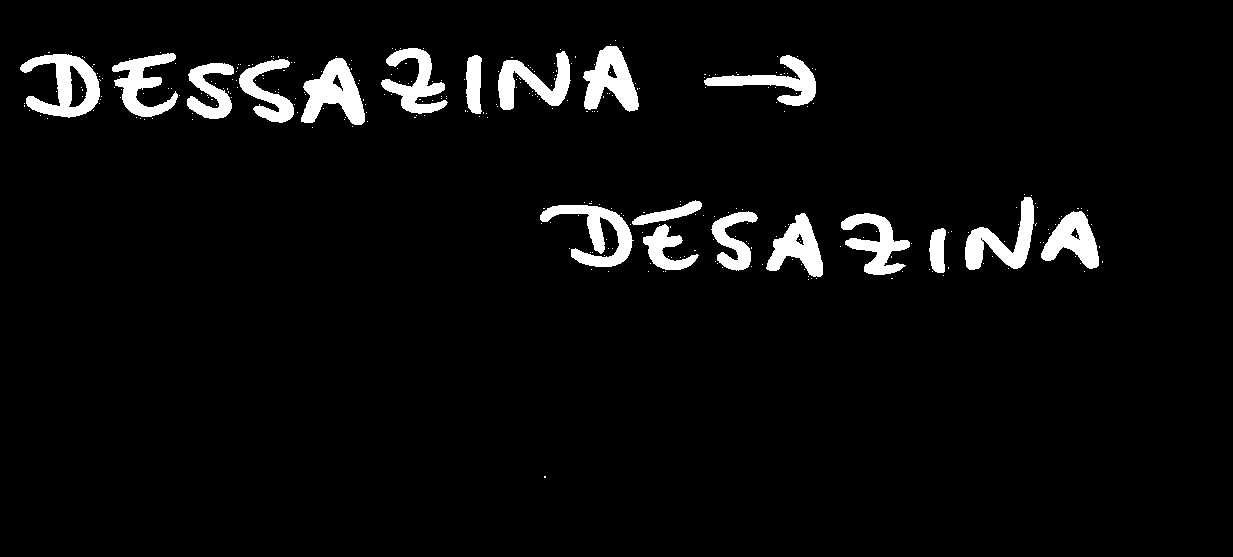 DESSAZINA →
DESAZINA